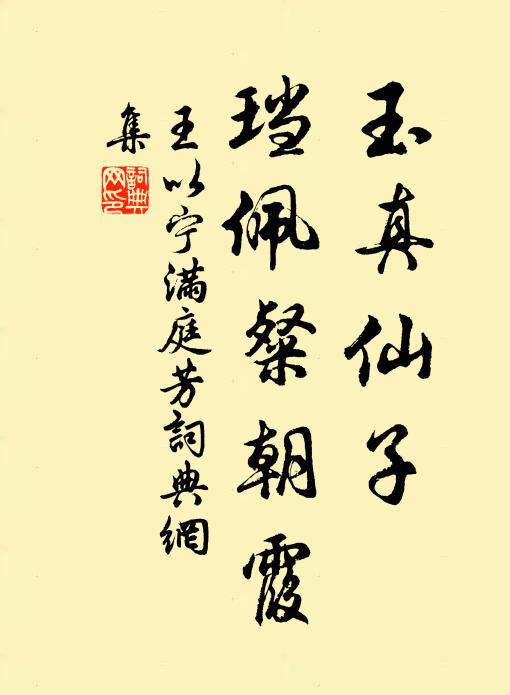 玉真仙子
珰佩粲朝霞
王以宁满庭芳詞典網
集
詞典网印